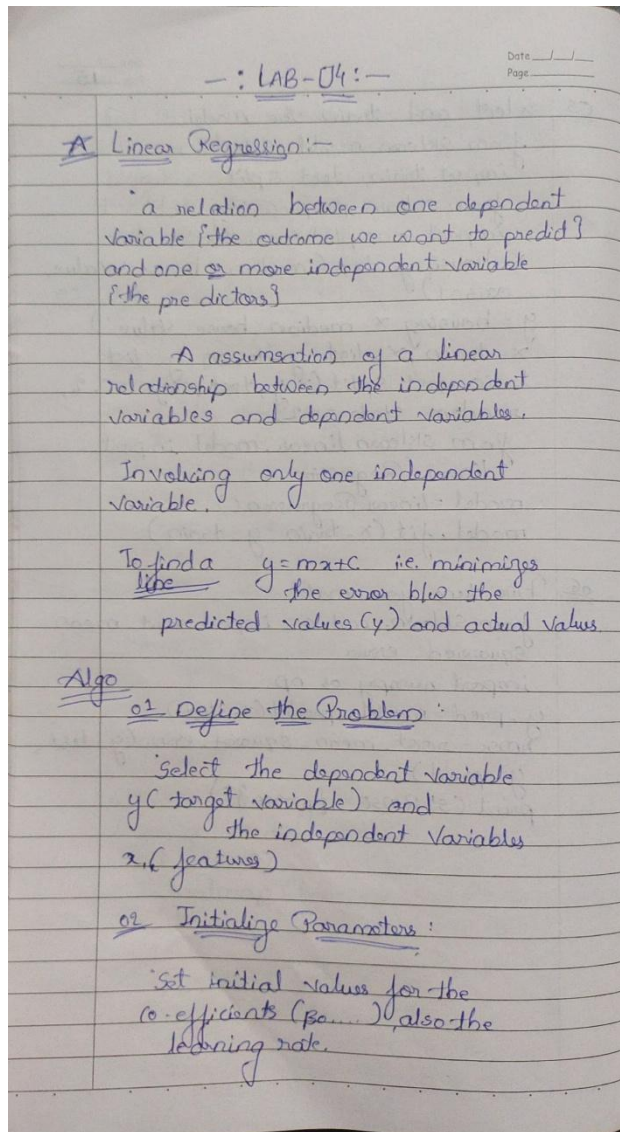 Date __/__/__
Page ______
- : LAB-04 : -
A Linear Regression:-
a relation between one dependent
variable {the outcome we want to predict}
and one or more independent variable
{the predictors}
A assumsation of a linear
relationship between the independent
variables and dependent variables.
Involving only one independent
variable.
To find a y=mx+c i.e. minimizes
line the error b/w the
predicted values (y) and actual values.
Algo
01 Define the Problem :
Select the dependent variable
y ( target variable) and
the independent Variables
x, ( features)
02 Initialize Parameters :
Set initial values for the
co-efficients (βo.....), also the
learning rate.